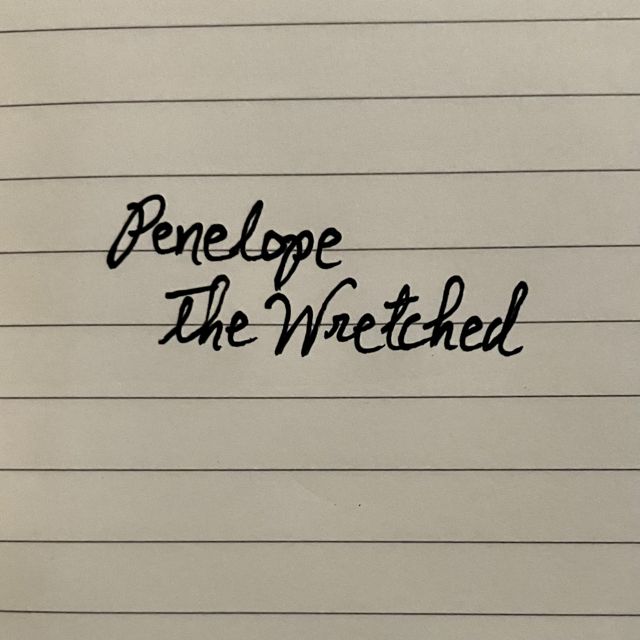 Penelope
The Wretched